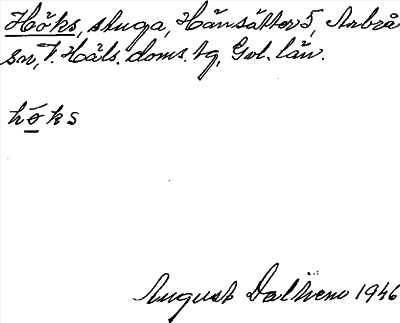 Höks, stuga, Hänsätter 5, Arbrå
sn, V. Häls. doms. tg, Gvl. län.
höks
August Dalhem 1946